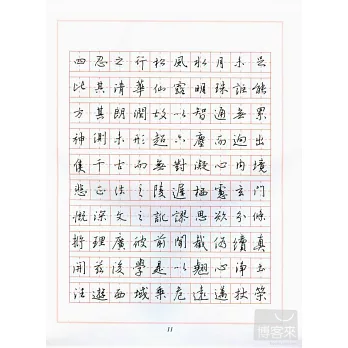 四忍之行松風水月未足
比其清華仙露明珠詎能
方其朗潤故以智通無累
神測未形超六塵而迥出
隻千古而無對凝心內境
悲正法之陵遲栖慮玄門
慨深文之訛謬思欲分條
析理廣彼前聞截偽續真
開茲後學是以翹心淨土
往遊西域乘危遠邁杖策
11
博客來